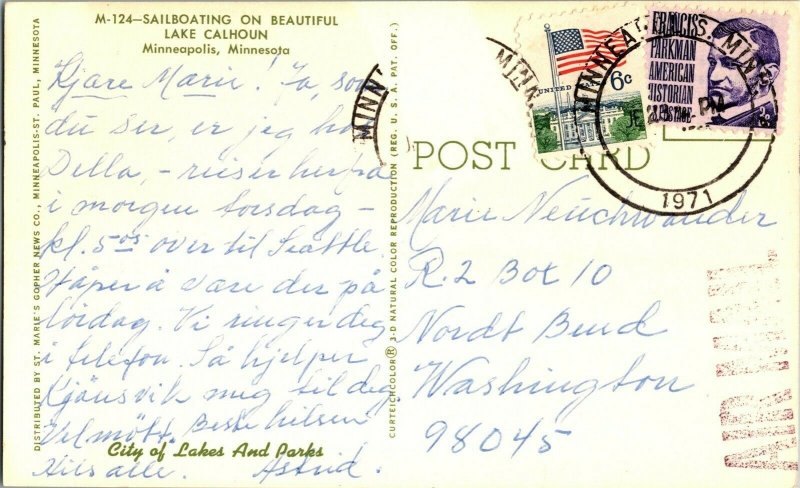 M-124—SAILBOATING ON BEAUTIFUL
LAKE CALHOUN
Minneapolis, Minnesota
Kjære Marie! Ja, som
du ser, er jeg hos
Della, - reiser herfra
i morgen torsdag -
kl. 5 05 over til Seattle.
Håper å være der på
lördag. Vi ringer deg
i telefon. Så hjelper
Kjänsvik meg til deg
Velmött. Beste hilsen
Hils alle. Astrid.
City of Lakes And Parks
DISTRIBUTED BY ST. MARIE'S GOPHER NEWS CO., MINNEAPOLIS-ST. PAUL, MINNESOTA
CURTEICHCOLOR® 3-D NATURAL COLOR REPRODUCTION (REG. U.S.A. PAT. OFF.)
POST CARD
MINN
MINN
UNITED
6c
MINNEAPOLIS, MINN
PM
1971
FRANCIS
PARKMAN
AMERICAN
HISTORIAN
Marie Neuchwander
R. 2 Box 10
Nordt Bend
Washington
98045
AIR MAIL